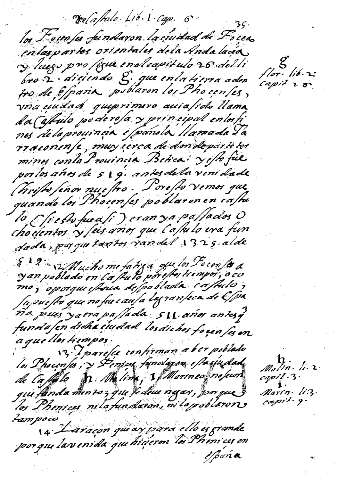 Castulo Lib. 1. Cap. 6
35
los Focenses fundaron la ciudad de Focea
en las partes orientales de la Andalucia
y luego prosigue en el capitulo 26 del li
bro 2. diciendo g. que en la tierra aden
tro de España poblaron los Phocenses,
vna ciudad que primero auia sido llama
da Castulo poderosa, y principal en los fi
nes de la prouincia española llamada Ta
rraconense, muy cerca de donde parte ter
minos con la Prouincia Betica: y esto fue
por los años de 519. antes de la venida de
Christo señor nuestro. Por esto vemos que
quando los Phocenses poblaron en castu
lo (si esto fue asi) eran ya pasados 8
chocientos y seis años que Castulo era fun
dada, porque tantos van del 1325. al de
519.
12. Mucho me fatiga que los Focenses a
yan poblado en Castulo por estos tiempos, o co
mo, o porque estaua despoblada Castulo,
pues ya era pasada 511 años antes q
fundosen dicha ciudad los dichos focenses en
aquellos tiempos.
13. I parece confirman aber poblado
los Phocenses, y Fenices fundaron esta ciudad
de Castulo h. Molina, i Morineo, no se con
que fundamento, que se deue negar, porque
los Phenices ni la fundaron, ni la poblaron
tampoco
14. La razon que ay para ello es grande
porque la venida que hicieron los Phenices en
españa
g
flor. lib. 2.
capit. 26.
h.
Molin. li. 2.
capit. 3.
i.
Marin. li. 3.
capit. 9.